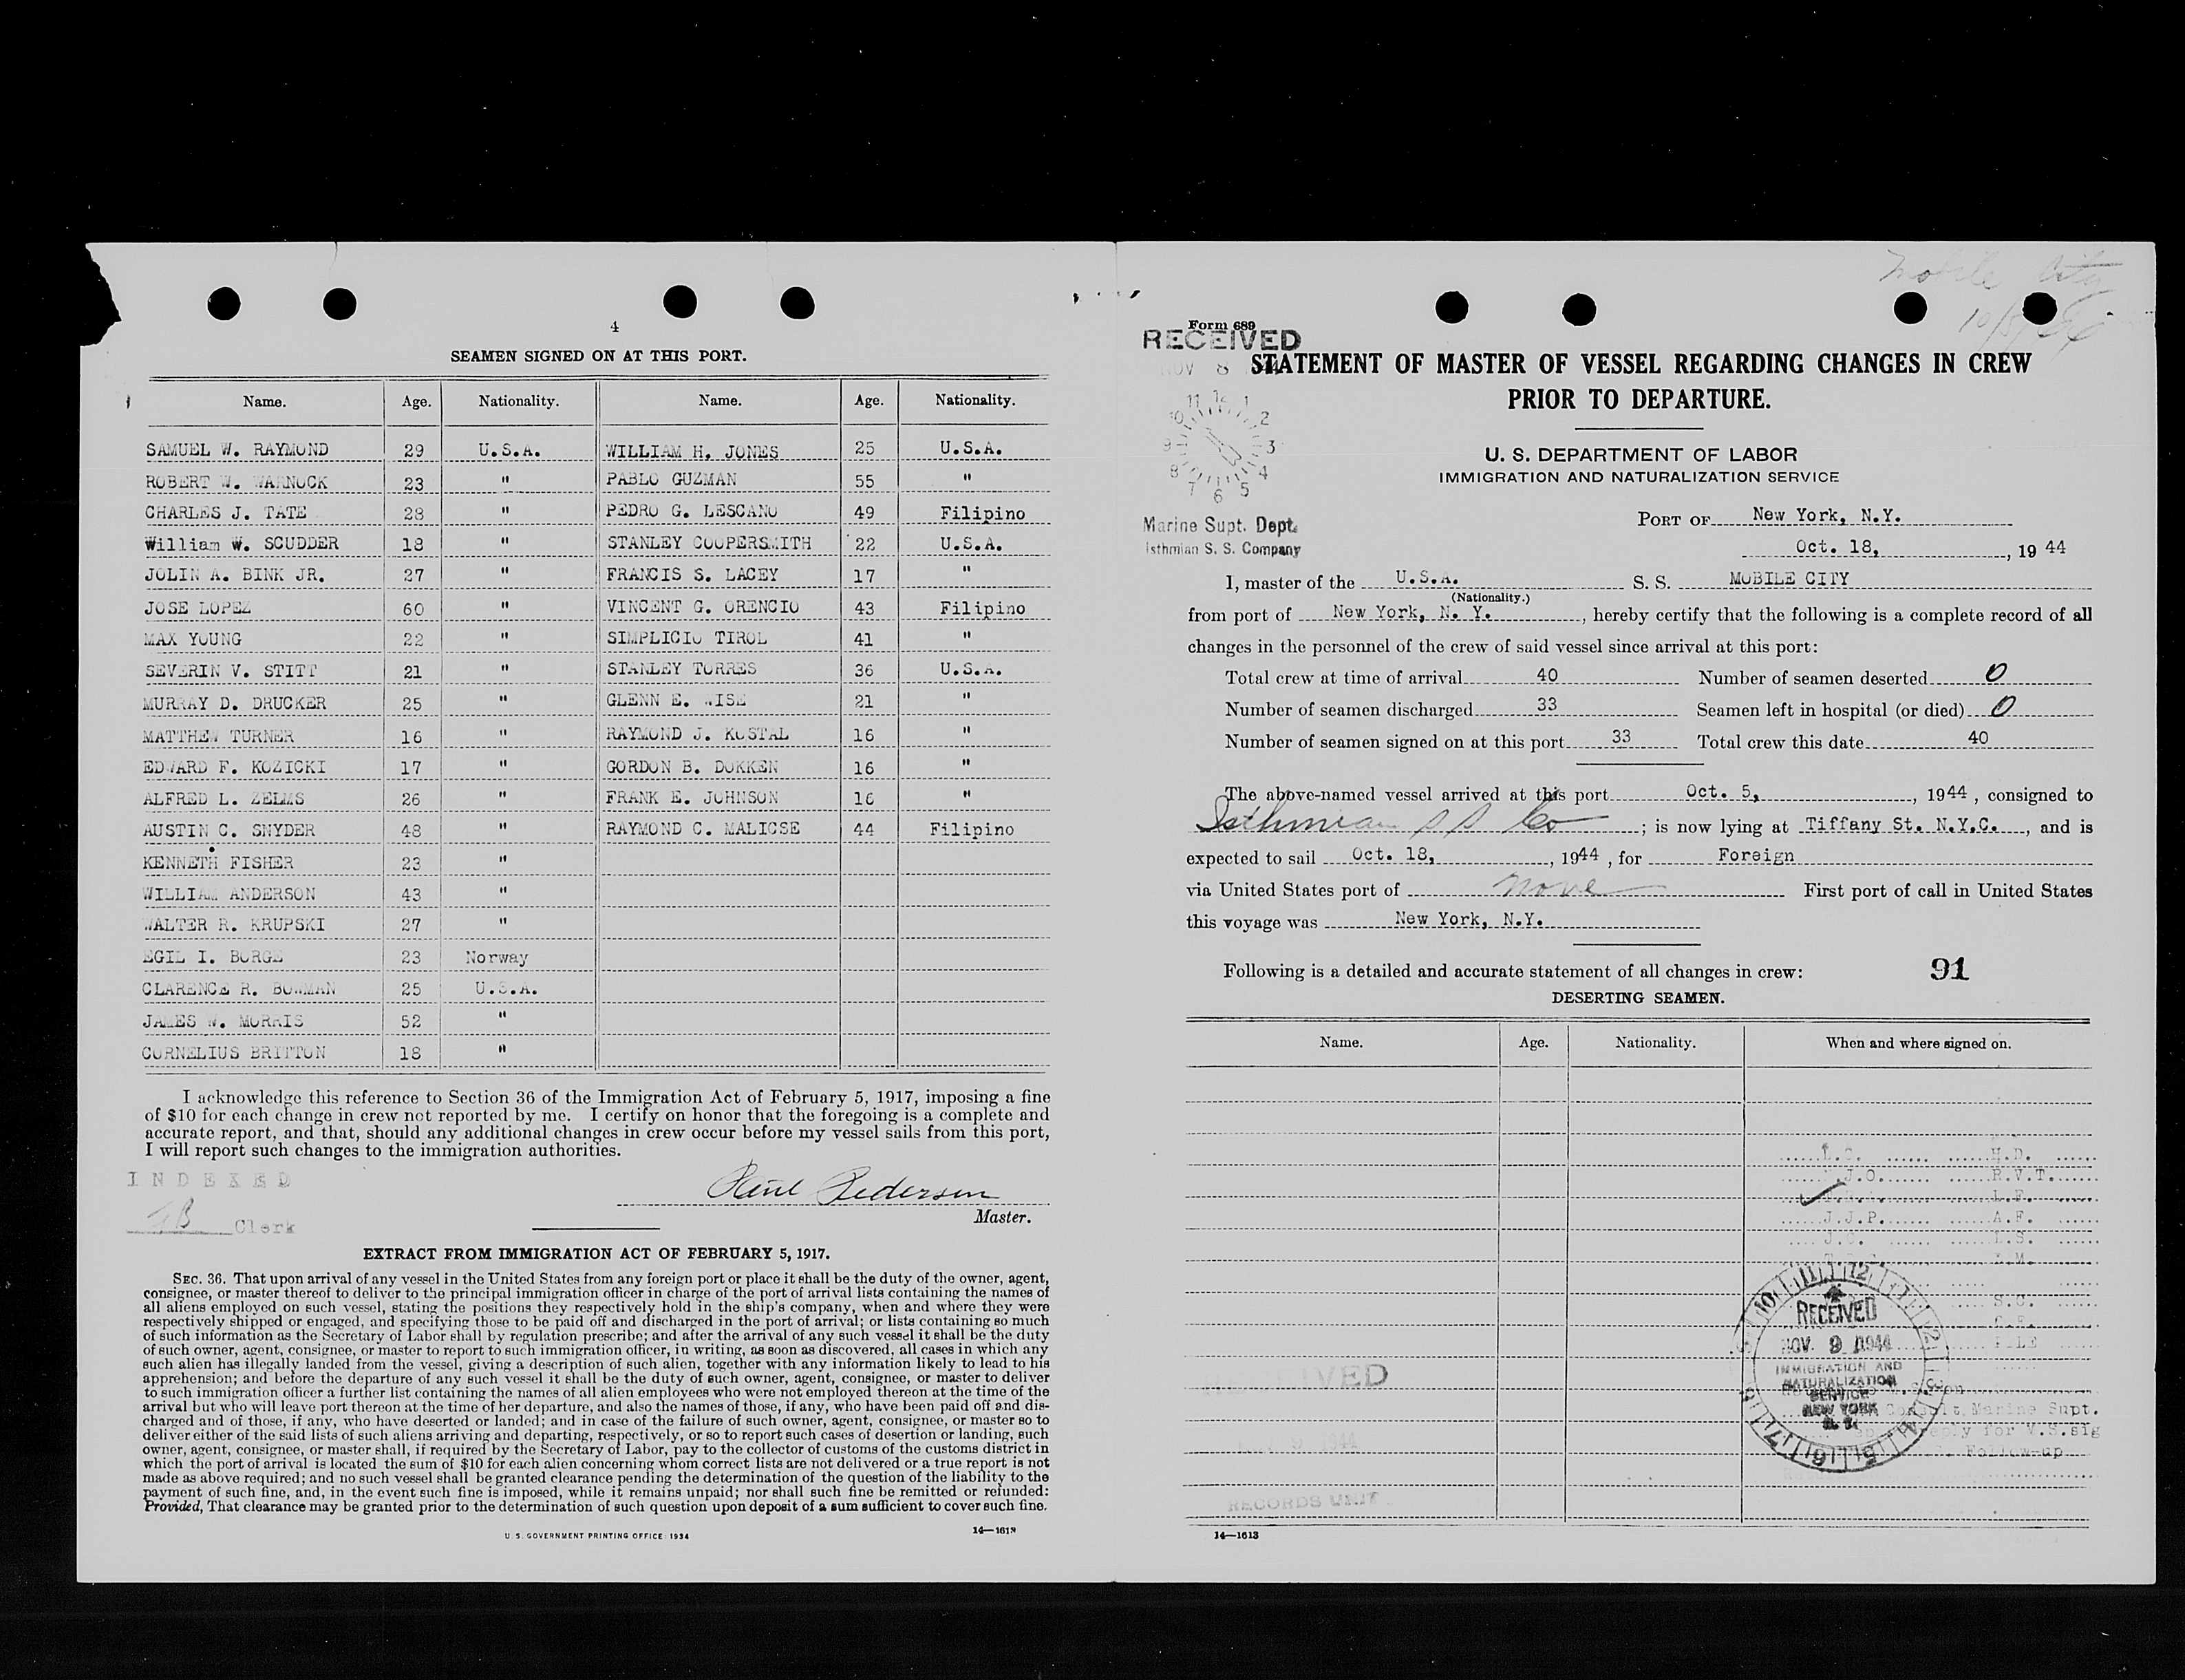 4
SEAMEN SIGNED ON AT THIS PORT.
Name. Age. Nationality. Name. Age. Nationality.
SAMUEL W. RAYMOND 29 U.S.A. WILLIAM H. JONES 25 U.S.A.
ROBERT W. WARNOCK 23 " PABLO GUZMAN 55 "
CHARLES J. TATE 28 " PEDRO G. LESCANO 49 Filipino
William W. SCUDDER 18 " STANLEY COOPERSMITH 22 U.S.A.
JOLIN A. BINK JR. 27 " FRANCIS S. LACEY 17 "
JOSE LOPEZ 60 " VINCENT G. ORENCIO 43 Filipino
MAX YOUNG 22 " SIMPLICIO TIROL 41 "
SEVERIN V. STITT 21 " STANLEY TORRES 36 U.S.A.
MURRAY D. DRUCKER 25 " GLENN E. WISE 21 "
MATTHEW TURNER 16 " RAYMOND J. KOSTAL 16 "
EDWARD F. KOZICKI 17 " GORDON B. DOKKEN 16 "
ALFRED L. ZELMS 26 " FRANK E. JOHNSON 16 "
AUSTIN C. SNYDER 48 " RAYMOND C. MALICSE 44 Filipino
KENNETH FISHER 23 "
WILLIAM ANDERSON 43 "
WALTER R. KRUPSKI 27 "
EGIL I. BORGE 23 Norway
CLARENCE R. BOWMAN 25 U.S.A.
JAMES W. MORRIS 52 "
CORNELIUS BRITTON 18 "
I acknowledge this reference to Section 36 of the Immigration Act of February 5, 1917, imposing a fine
of $10 for each change in crew not reported by me. I certify on honor that the foregoing is a complete and
accurate report, and that, should any additional changes in crew occur before my vessel sails from this port,
I will report such changes to the immigration authorities.
INDEXED
Clerk
Paul Pedersen
Master.
EXTRACT FROM IMMIGRATION ACT OF FEBRUARY 5, 1917.
SEC. 36. That upon arrival of any vessel in the United States from any foreign port or place it shall be the duty of the owner, agent,
consignee, or master thereof to deliver to the principal immigration officer in charge of the port of arrival lists containing the names of
all aliens employed on such vessel, stating the positions they respectively hold in the ship's company, when and where they were
respectively shipped or engaged, and specifying those to be paid off and discharged in the port of arrival; or lists containing so much
of such information as the Secretary of Labor shall by regulation prescribe; and after the arrival of any such vessel it shall be the duty
of such owner, agent, consignee, or master to report to such immigration officer, in writing, as soon as discovered, all cases in which any
such alien has illegally landed from the vessel, giving a description of such alien, together with any information likely to lead to his
apprehension; and before the departure of any such vessel it shall be the duty of such owner, agent, consignee, or master to deliver
to such immigration officer a further list containing the names of all alien employees who were not employed thereon at the time of the
arrival but who will leave port thereon at the time of her departure, and also the names of those, if any, who have been paid off and dis-
charged and of those, if any, who have deserted or landed; and in case of the failure of such owner, agent, consignee, or master so to
deliver either of the said lists of such aliens arriving and departing, respectively, or so to report such cases of desertion or landing, such
owner, agent, consignee, or master shall, if required by the Secretary of Labor, pay to the collector of customs of the customs district in
which the port of arrival is located the sum of $10 for each alien concerning whom correct lists are not delivered or a true report is not
made as above required; and no such vessel shall be granted clearance pending the determination of the question of the liability to the
payment of such fine, and, in the event such fine is imposed, while it remains unpaid; nor shall such fine be remitted or refunded:
Provided, That clearance may be granted prior to the determination of such question upon deposit of a sum sufficient to cover such fine.
U. S. GOVERNMENT PRINTING OFFICE: 1934
14—1613
Mobile City
Form 689
RECEIVED
NOV 8
STATEMENT OF MASTER OF VESSEL REGARDING CHANGES IN CREW
PRIOR TO DEPARTURE.
U. S. DEPARTMENT OF LABOR
IMMIGRATION AND NATURALIZATION SERVICE
Marine Supt. Dept.
Isthmian S. S. Company
PORT OF New York, N.Y.
Oct. 18, , 19 44
I, master of the U.S.A. S. S. MOBILE CITY
(Nationality.)
from port of New York, N. Y. , hereby certify that the following is a complete record of all
changes in the personnel of the crew of said vessel since arrival at this port:
Total crew at time of arrival 40 Number of seamen deserted 0
Number of seamen discharged 33 Seamen left in hospital (or died) 0
Number of seamen signed on at this port 33 Total crew this date 40
The above-named vessel arrived at this port Oct. 5, , 1944 , consigned to
Isthmian S S Co ; is now lying at Tiffany St. N.Y.C. , and is
expected to sail Oct. 18, , 1944 , for Foreign
via United States port of none First port of call in United States
this voyage was New York, N.Y.
Following is a detailed and accurate statement of all changes in crew: 91
DESERTING SEAMEN.
Name. Age. Nationality. When and where signed on.
H.D.
J.O. R.V.T.
L.F.
J.J.P. A.F.
J.C. L.S.
S.C.
FILE
RECEIVED
NOV. 9 1944
IMMIGRATION AND
NATURALIZATION
SERVICE
NEW YORK
N. Y.
Consult. Marine Supt.
reply for V.S.sig
Follow-up
RECEIVED
NOV 9 1944
RECORDS UNIT
14—1613